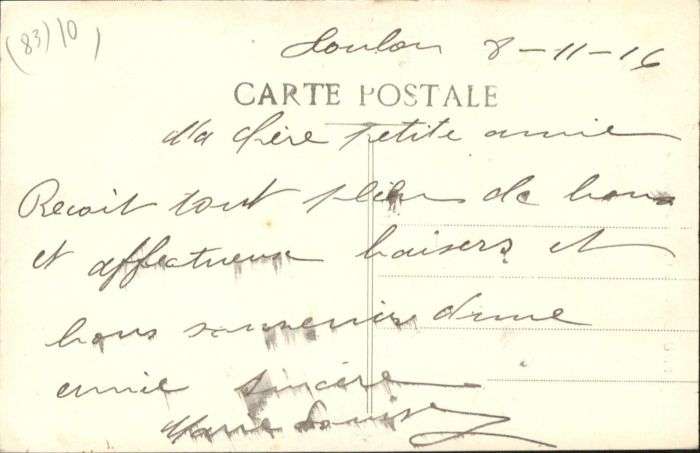 (83) 10)
Toulon 8-11-16
CARTE POSTALE
Ma chère petite amie
Recoit tout plein de bons
et affectueux baisers et
bons souvenirs d'une
amie sincère
Marie Louise